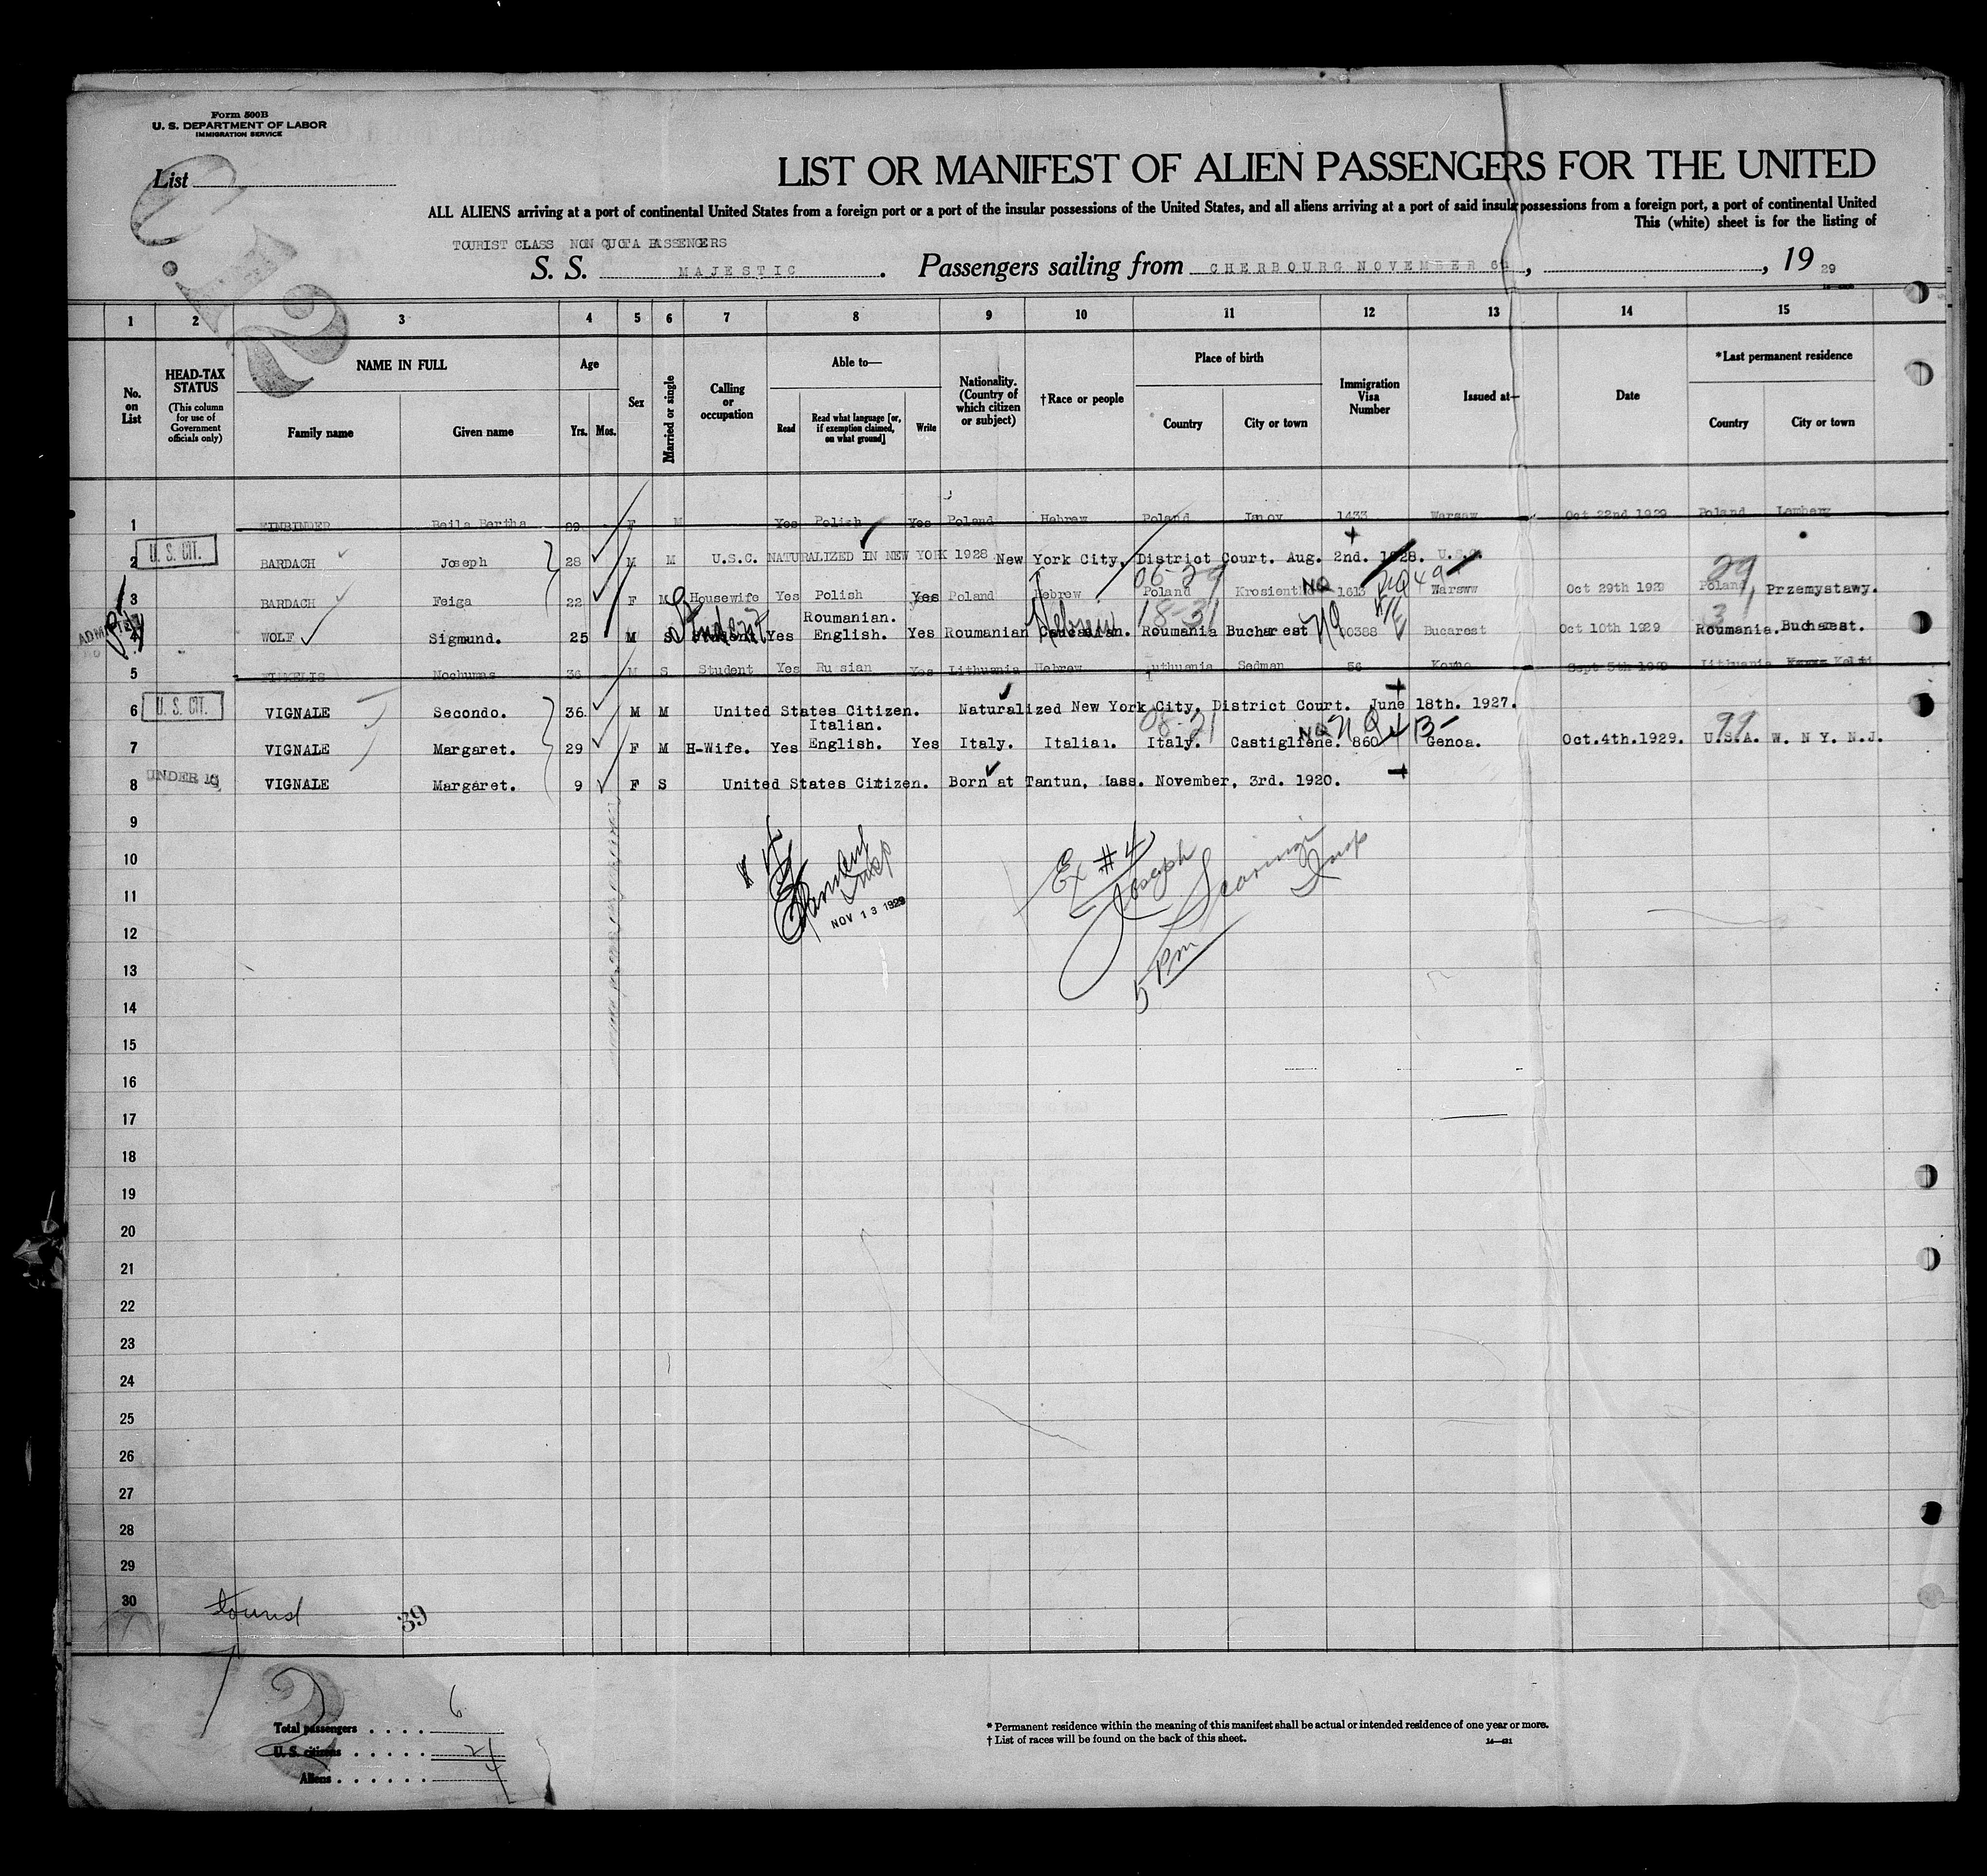 Form 500B
U. S. DEPARTMENT OF LABOR
IMMIGRATION SERVICE
List
LIST OR MANIFEST OF ALIEN PASSENGERS FOR THE UNITED
ALL ALIENS arriving at a port of continental United States from a foreign port or a port of the insular possessions of the United States, and all aliens arriving at a port of said insular possessions from a foreign port, a port of continental United
This (white) sheet is for the listing of
TOURIST CLASS NON QUOTA PASSENGERS
S. S. MAJESTIC. Passengers sailing from CHERBOURG NOVEMBER 6th, , 19 29
1 2 3 4 5 6 7 8 9 10 11 12 13 14 15
No. on List
HEAD-TAX STATUS
(This column for use of Government officials only)
NAME IN FULL
Family name Given name
Age
Yrs. Mos.
Sex
Married or single
Calling or occupation
Able to—
Read Read what language [or, if exemption claimed, on what ground] Write
Nationality. (Country of which citizen or subject)
†Race or people
Place of birth
Country City or town
Immigration Visa Number
Issued at—
Date
*Last permanent residence
Country City or town
1 Beila Bertha F M Yes Polish Yes Poland Hebrew Poland Janov 1433 Warsaw Oct 22nd 1929 Poland Lemberg
2 U. S. CIT. BARDACH Joseph 28 M M U.S.C. NATURALIZED IN NEW YORK 1928 New York City, District Court. Aug. 2nd. 1928. U.S.A.
06-29 NQ 49 29
3 BARDACH Feiga 22 F M Housewife Yes Polish Yes Poland Hebrew Poland 1613 Warsww Oct 29th 1929 Poland, Przemystawy.
ADMITTED Student Roumanian. Hebrew 18-31 NQ 31
4 WOLF Sigmund. 25 M S Student Yes English. Yes Roumanian Caucasian. Roumania Bucharest 00388 Bucarest Oct 10th 1929 Roumania. Bucharest.
5 Nochumas 36 M S Student Yes Russian Yes Lithuania Hebrew Luthuania Sedman 56 Kowno Sept 5th 1929 Lithuania
6 U. S. CIT. VIGNALE Secondo. 36 M M United States Citizen. Naturalized New York City, District Court. June 18th. 1927.
Italian. 08-21 NQ 99
7 VIGNALE Margaret. 29 F M H-Wife. Yes English. Yes Italy. Italian. Italy. Castigliene. 860 Genoa. Oct.4th.1929. U.S.A. W. N Y. N.J.
8 UNDER 16 VIGNALE Margaret. 9 F S United States Citizen. Born at Tantun, Mass. November, 3rd. 1920.
9
10
11
12
13
14
15
16
17
18
19
20
21
22
23
24
25
26
27
28
29
30
NOV 13 1929
Ex #4
Joseph Scaringi
Insp
5 Pm
39
Total passengers . . . . 6
U. S. citizens . . . . . 2
Aliens . . . . . . 4
* Permanent residence within the meaning of this manifest shall be actual or intended residence of one year or more.
† List of races will be found on the back of this sheet.